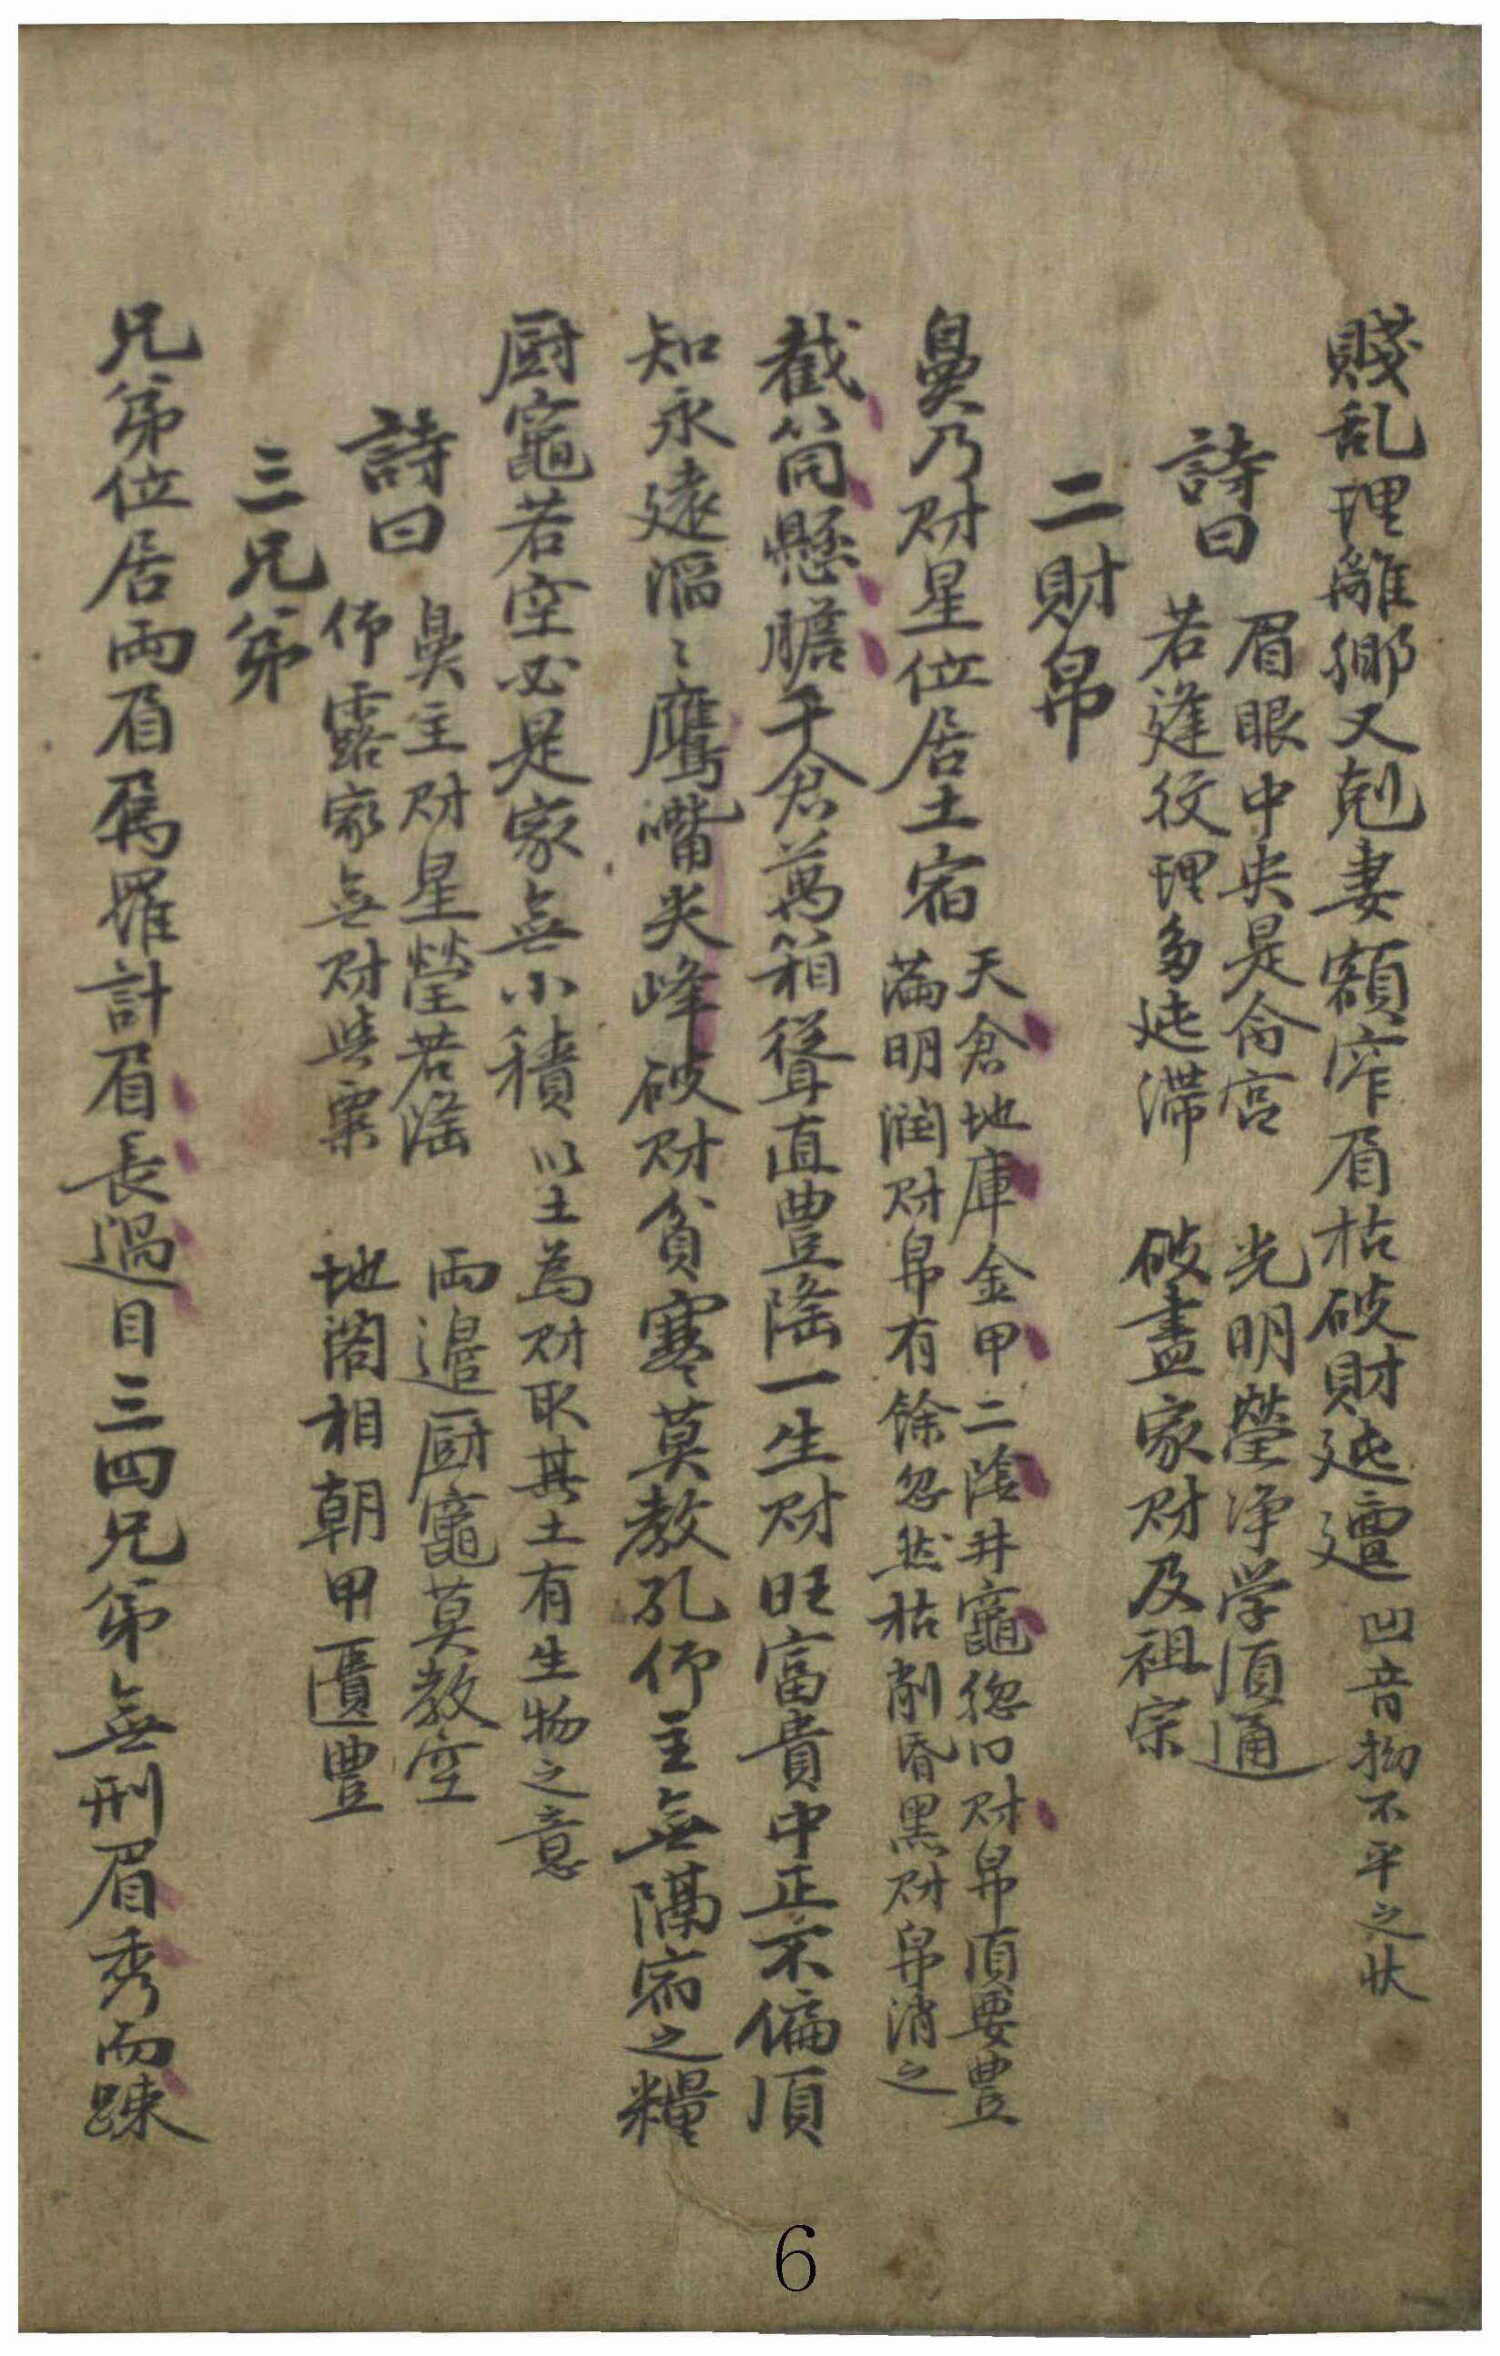 賤乱理離鄉又剋妻額窄眉枯破財迍邅凹音拗不平之状
詩曰
眉眼中央是命宮　光明瑩淨学須通
若逢紋理多迍滯　破盡家財及祖宗
二財帛
鼻乃財星位居土宿
天倉地庫金甲二陰井竈緫曰財帛須要豊
滿明潤財帛有餘忽然枯削昏黑財帛消之
截筒懸膽千倉萬箱聳直豊隆一生財旺富貴中正不偏須
知永遠滔〻鷹嘴尖峰破財貧寒莫教孔仰主無隔宿之糧
厨竈若空必是家無小積
以土為財取其土有生物之意
詩曰
鼻主財星瑩若隆　兩邊厨竈莫教空
仰露家無財與粟　地阁相朝甲匱豊
三兄弟
兄弟位居兩眉爲羅計眉長過目三四兄弟無刑眉秀而踈
6